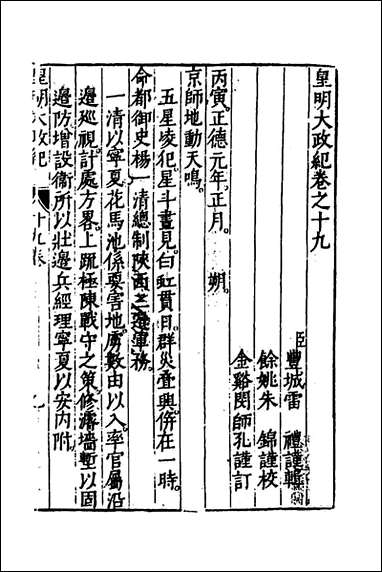 皇明大政紀卷之十九
臣豐城雷 禮謹輯
餘姚朱 錦謹校
金谿閔師孔謹訂
丙寅。正德元年。正月。 朔。
京師地動天鳴。
五星凌犯。星斗晝見。白虹貫日。群災疊興。併在一時。
命都御史楊一清總制陝西三邊軍務。
一清以寧夏花馬池係要害地。虜數由以入。率官屬沿
邊巡視計處方畧。上疏極陳戰守之策。修濬墻塹以固
邊防。增設衛所以壯邊兵。經理寧夏以安內附
皇明大政紀 十九卷